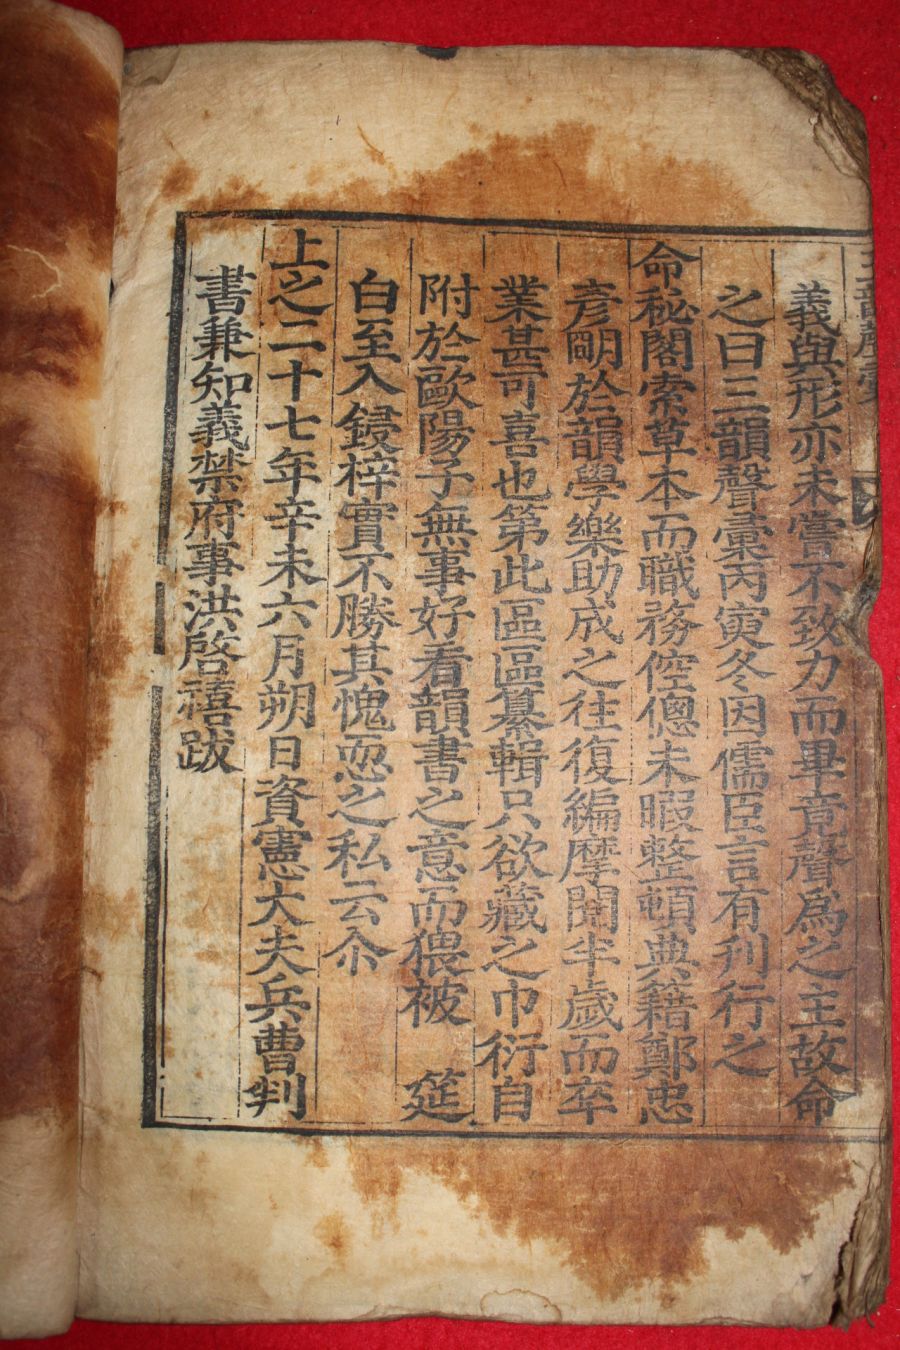 三韻聲彙
義與形亦未嘗不致力而畢竟聲爲之主故命
之曰三韻聲彙丙寅冬因儒臣言有刊行之
命秘閣索草本而職務倥傯未暇整頓典籍鄭忠
彦明於韻學樂助成之往復編摩閱半歲而卒
業甚可喜也第此區區纂輯只欲藏之巾衍自
附於歐陽子無事好看韻書之意而猥被 筵
白至入鋟梓實不勝其愧恧之私云尒
上之二十七年辛未六月朔日資憲大夫兵曹判
書兼知義禁府事洪啓禧跋